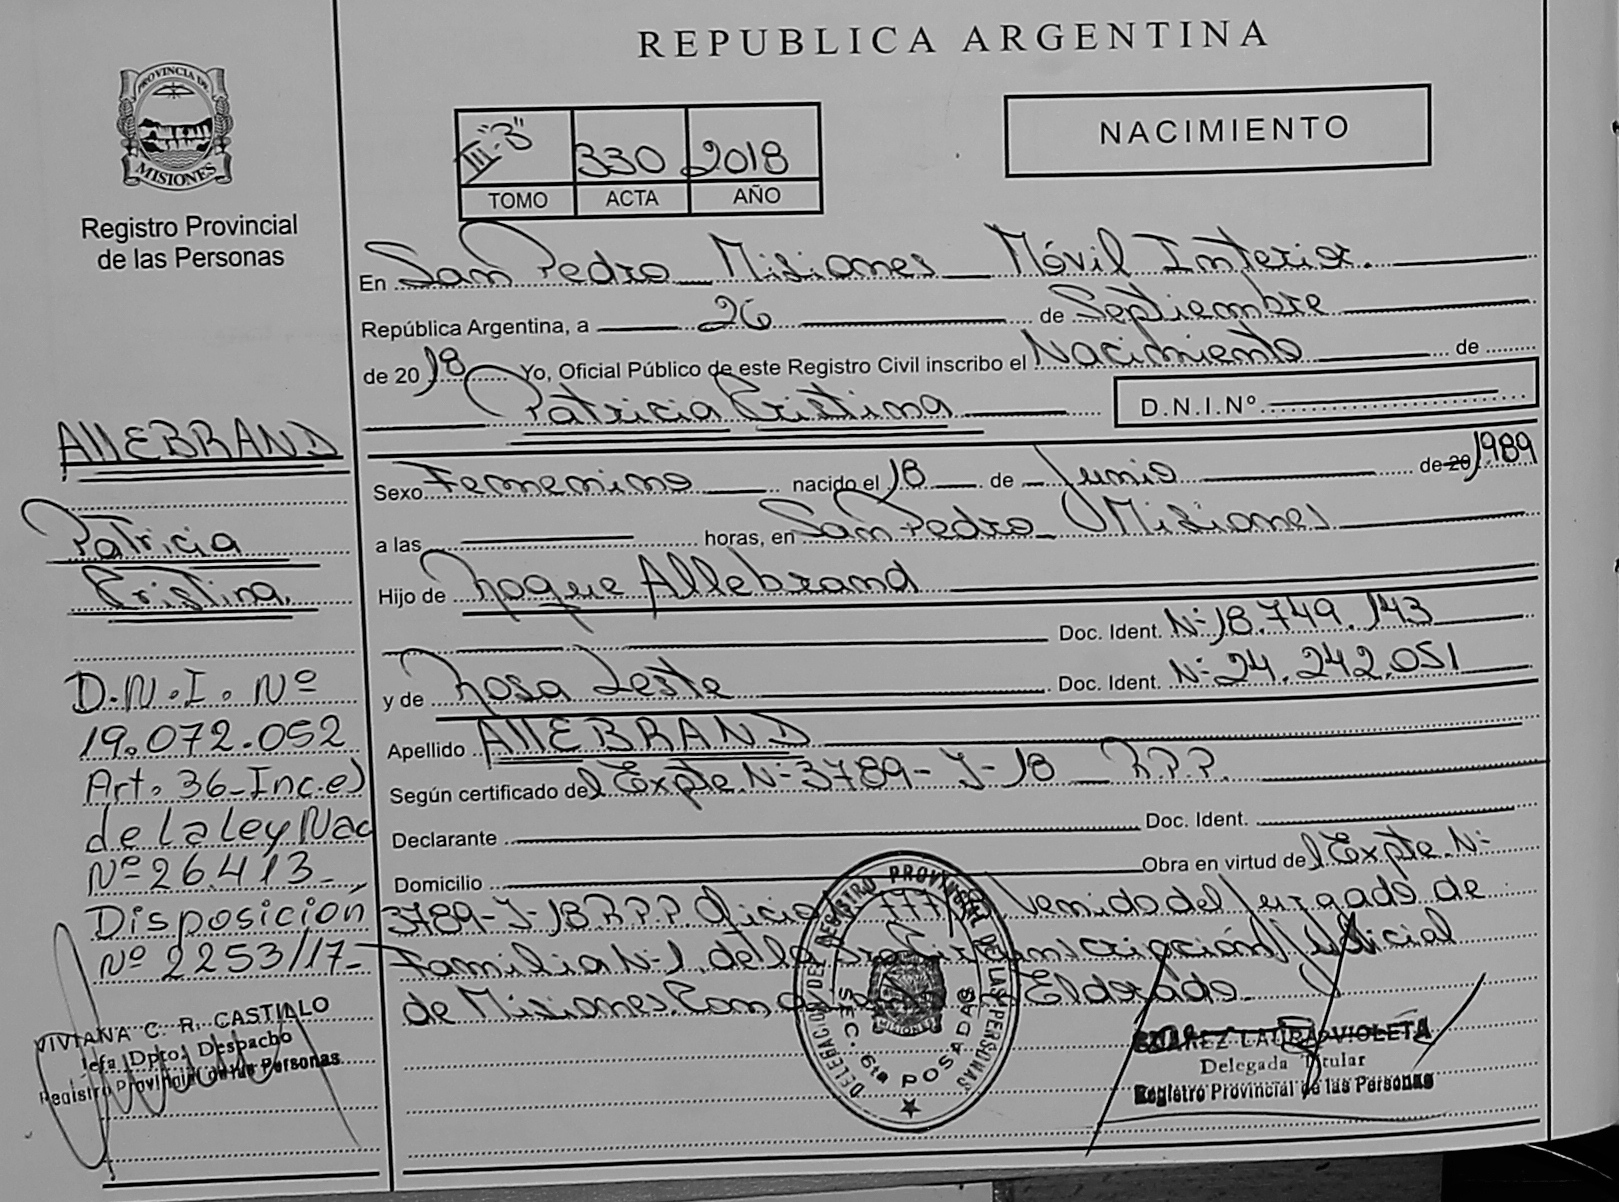 REPUBLICA ARGENTINA
PROVINCIA DE
MISIONES
Registro Provincial
de las Personas
III-"B" 330 2018
TOMO ACTA AÑO
NACIMIENTO
En San Pedro Misiones Móvil Interior.
República Argentina, a 26 de Septiembre
de 2018 Yo, Oficial Público de este Registro Civil inscribo el Nacimiento de
Patricia Cristina D.N.I.Nº
Sexo Femenino nacido el 18 de Junio de 20 1989
a las horas, en San Pedro Misiones
Hijo de Roque Allebrand
Doc. Ident. Nº 18.749.143
y de Rosa Leste Doc. Ident. Nº 24.242.051
Apellido AllEBRAND
Según certificado del Expte Nº 3789-J-18 R.P.P.
Declarante Doc. Ident.
Domicilio Obra en virtud del Expte. Nº
3789-J-18 R.P.P. Oficio venido del Juzgado de
Familia Nº 1 de la Judicial
de Misiones. Con Eldorado.
AllEBRAND
Patricia
Cristina.
D.N.I. Nº
19.072.052
Art. 36-Inc. e)
de la ley Nac
Nº 26.413-
Disposición
Nº 2253/17-
VIVIANA C. R. CASTILLO
Jefa Dpto. Despacho
Registro Provincial de las Personas
DELEGACION DEL REGISTRO PROVINCIAL DE LAS PERSONAS
SEC. 6ta POSADAS
MISIONES
LAURA VIOLETA
Delegada Titular
Registro Provincial de las Personas